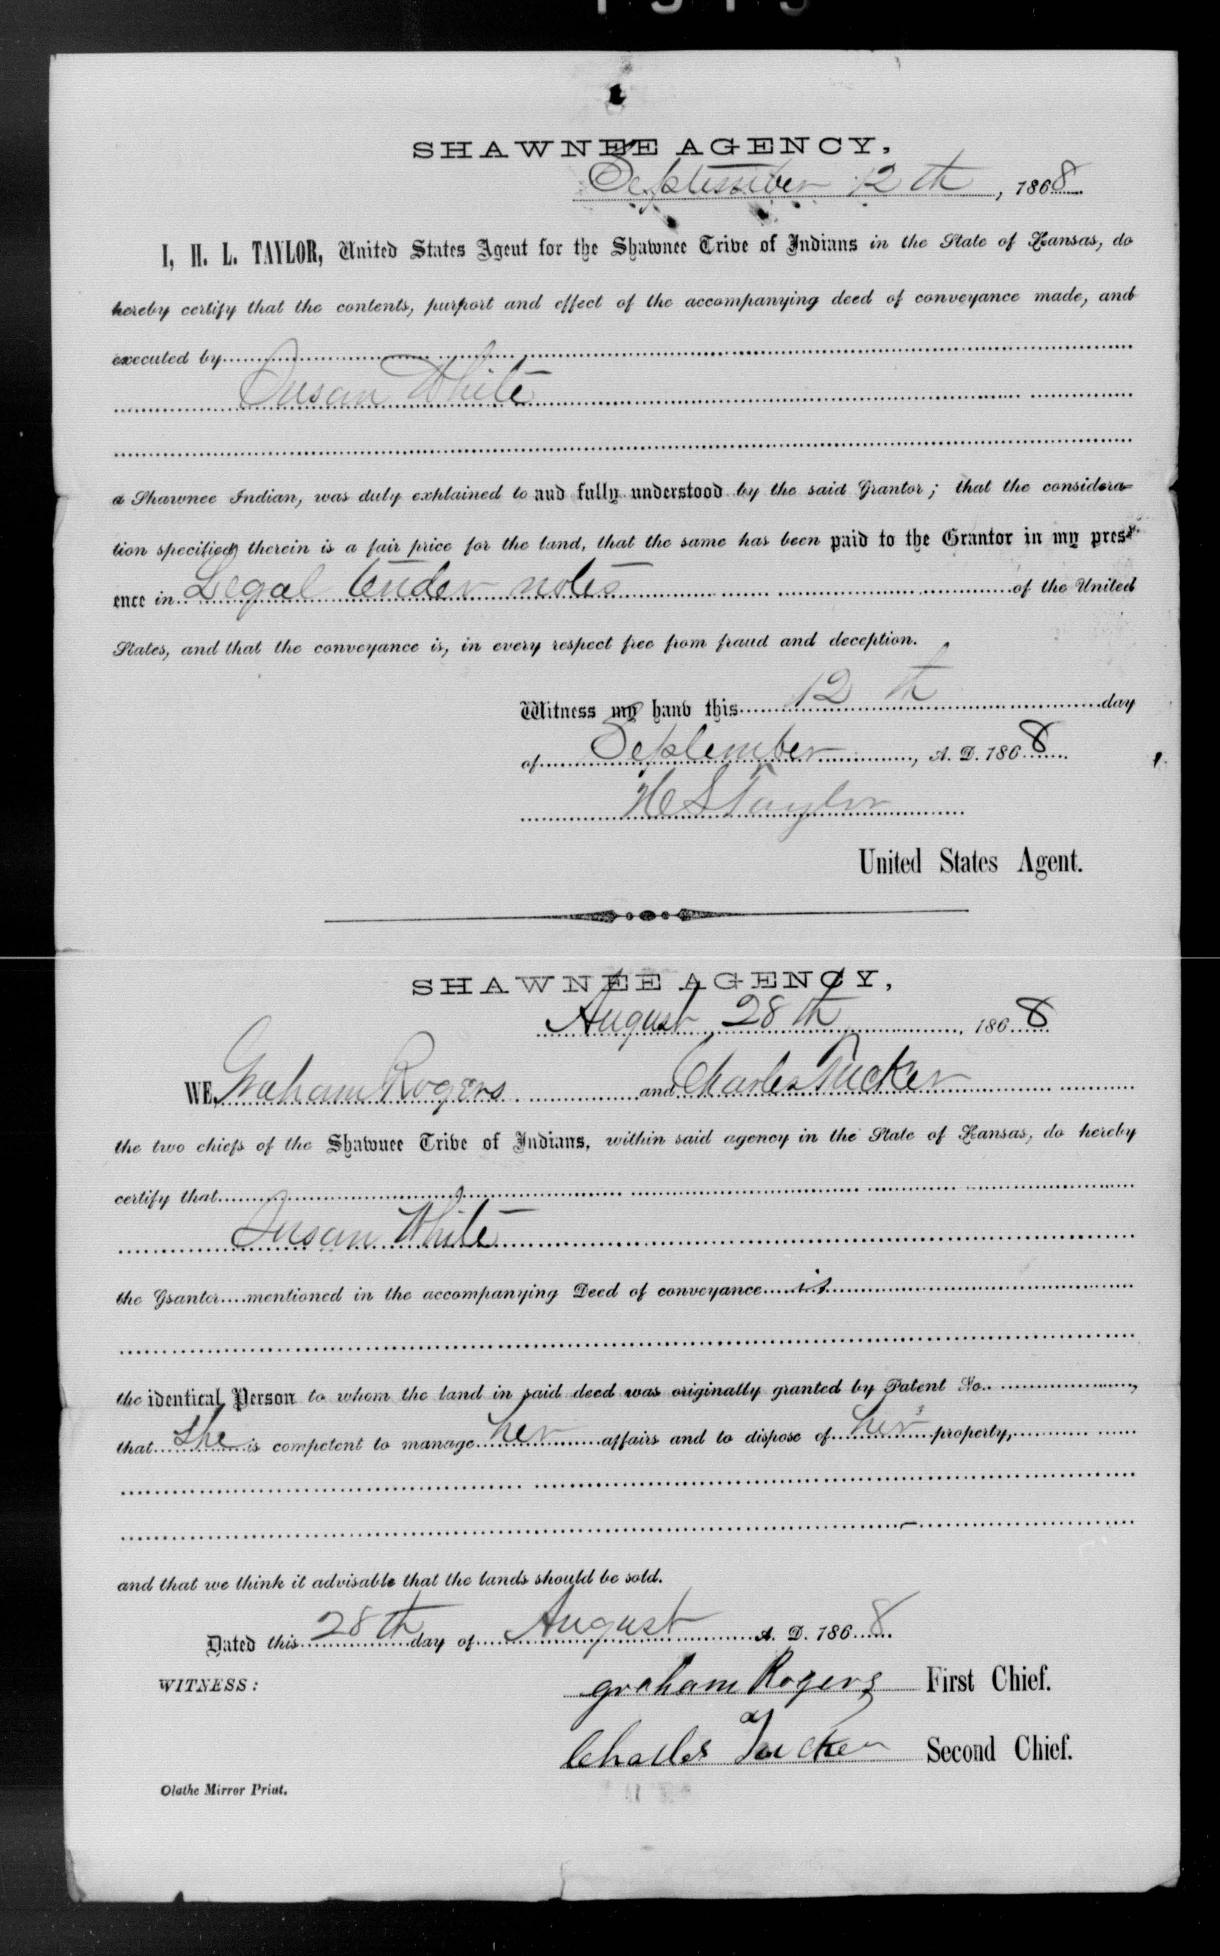 SHAWNEE AGENCY,
September 12th, 1868.
I, H. L. TAYLOR, United States Agent for the Shawnee Tribe of Indians in the State of Kansas, do
hereby certify that the contents, purport and effect of the accompanying deed of conveyance made, and
executed by
Susan White
a Shawnee Indian, was duly explained to and fully understood by the said Grantor; that the considera-
tion specified therein is a fair price for the land, that the same has been paid to the Grantor in my pres-
ence in Legal tender notes of the United
States, and that the conveyance is, in every respect free from fraud and deception.
Witness my hand this 12th day
of September, A. D. 1868
H L Taylor
United States Agent.
SHAWNEE AGENCY,
August 28th, 1868
WE, Graham Rogers and Charles Tucker
the two chiefs of the Shawnee Tribe of Indians, within said agency in the State of Kansas, do hereby
certify that
Susan White
the Grantor mentioned in the accompanying Deed of conveyance is
the identical Person to whom the land in said deed was originally granted by Patent No.
that she is competent to manage her affairs and to dispose of her property,
and that we think it advisable that the lands should be sold.
Dated this 28th day of August A. D. 1868
WITNESS:
graham Rogers First Chief.
Charles Tucker Second Chief.
Olathe Mirror Print.